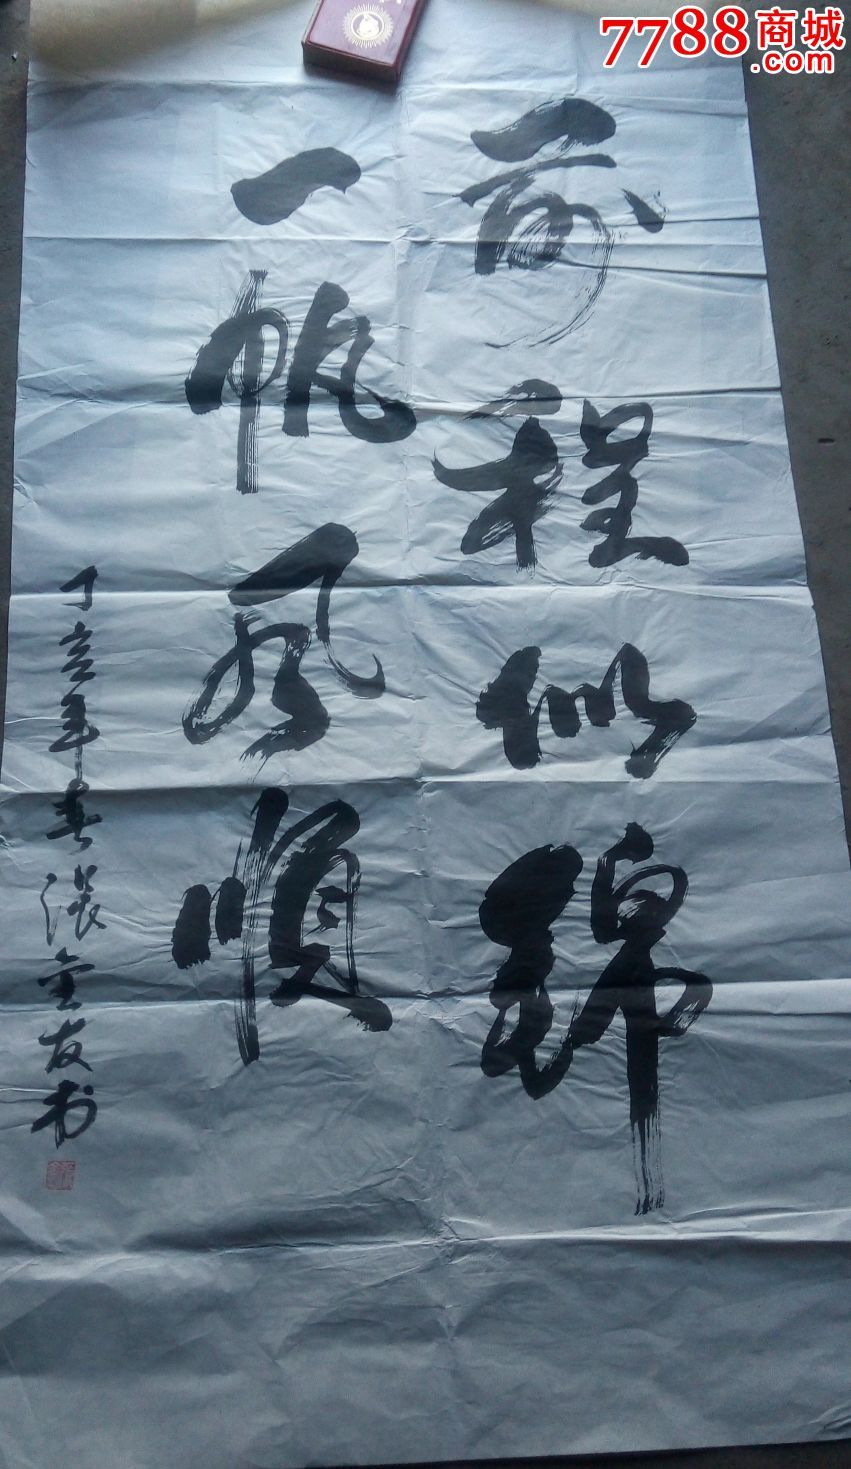 7788商城
.com
前程似錦
一帆风顺
丁亥年春张金友书